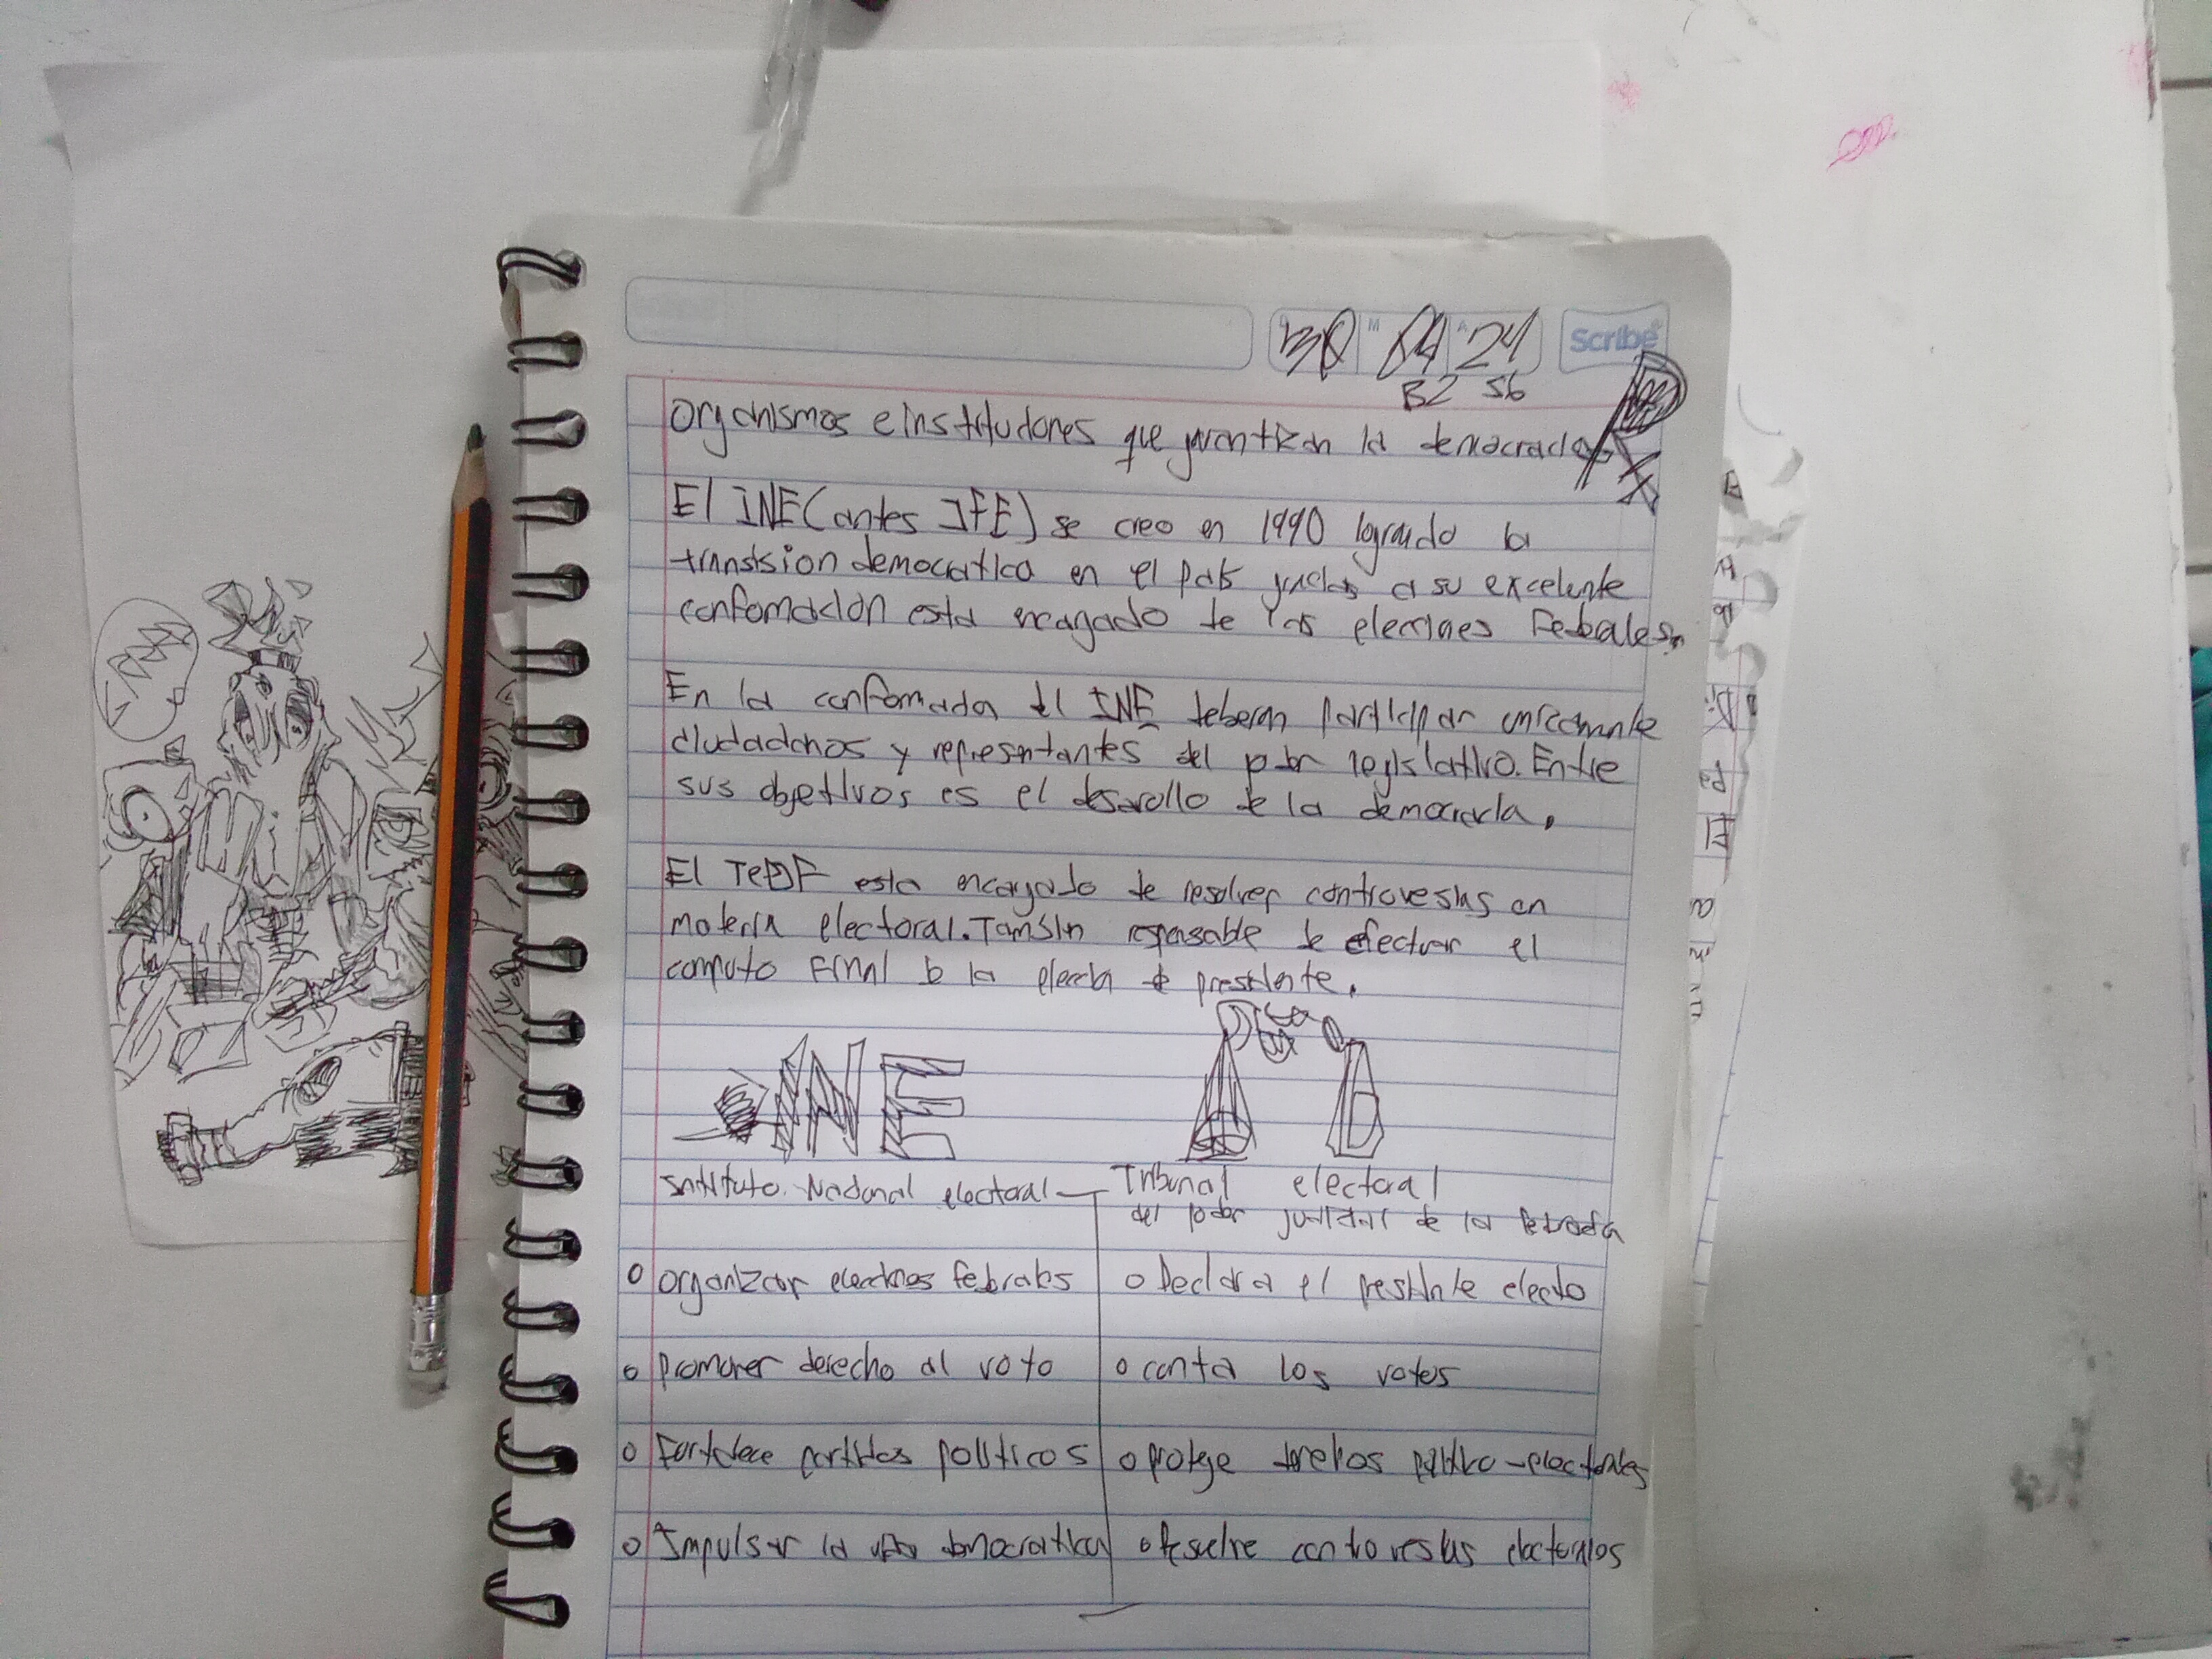 30 04 24
Scribe
B2 S6
Organismos e instituciones que garantizan la democracia
El INE (antes IFE) se creo en 1990 logrando la
transision democratica en el pais gracias a su excelente
confomacion esta encagado de las elecciones Federales.
En la confomacion del INE deberan participar unicamente
ciudadanos y representantes del poder legislativo. Entre
sus objetivos es el desarollo de la democracia.
El TEPJF esta encargado de resolver controvesias en
materia electoral. Tambien responsable de efectuar el
computo Final de la eleccion de presidente.
INE
Instituto Nacional electoral
Tribunal electoral
del poder judicial de la Federacion
o organizar elecciones federales
o Declara el presidente electo
o promover derecho al voto
o conta los votos
o Fortalece partidos politicos
o protege derechos politico-electorales
o Impulsar la vida democratica
o Resuelve controvesias electorales